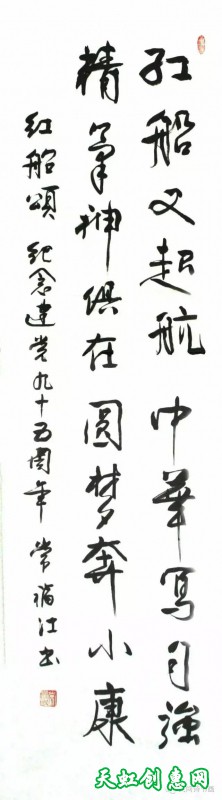 红船又起航 中華写自強
精氣神俱在 圆梦奔小康
红船頌 纪念建党九十五周年 常福江书
天虹创惠网